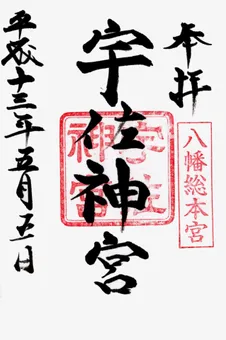 奉拝
八幡総本宮
宇佐神宮
宇佐神宮
平成十三年五月五日